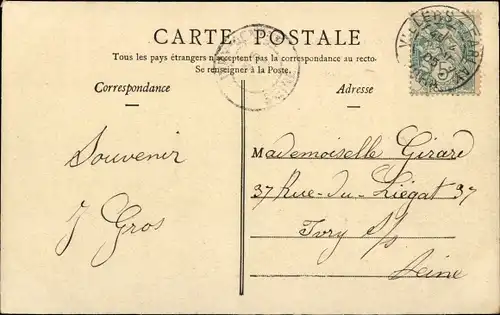 CARTE POSTALE
Tous les pays étrangers n'acceptent pas la correspondance au recto.
Se renseigner à la Poste.
Correspondance
Adresse
Souvenir
J Gros
Mademoiselle Girard
37 Rue-du-Liégat 37
Ivry s/s
Seine